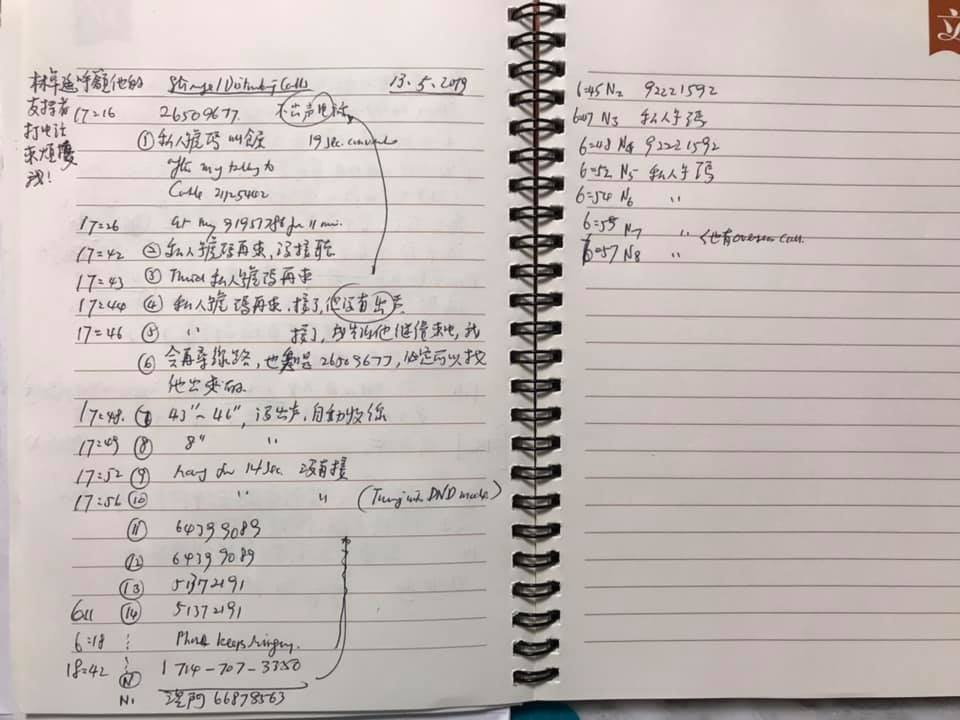 呼籲他的
支持者
打電話
來煩擾
我!
Strange/Disturbing Calls 13.5.2019
17=16 26509677. 不出声电话
① 私人號碼 19 sec.
Calls 21125402
17=26 my 91957788 for 11 min.
17=42 ② 私人號碼再來,沒接聽
17=43 ③ Third 私人號碼再來
17=44 ④ 私人號碼再來,接了,他沒有出声
17=46 ⑤ 〃 接了,我
⑥ 會再尋線路,也 26509677,必定可以找
他出來的
17=48. ⑦ 43"~46", 沒出声,自动收线
17=49 ⑧ 8" 〃
17=52 ⑨ hang for 14 sec. 沒有接
17=56 ⑩ 〃 〃 (Turn into DND mode)
⑪ 64399089
⑫ 64399089
⑬ 51372191
611 ⑭ 51372191
6=18 Phone keeps ringing.
18=42 N 1 714-707-3350
N1 66878563
立
6=45 N2 92221592
N3 私人号碼
6=48 N4 92221592
6=52 N5 私人号碼
6=54 N6 〃
6=55 N7 〃 也有oversea call.
6=57 N8 〃